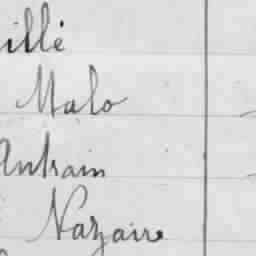 illé
Malo
Antrain
Nazaire